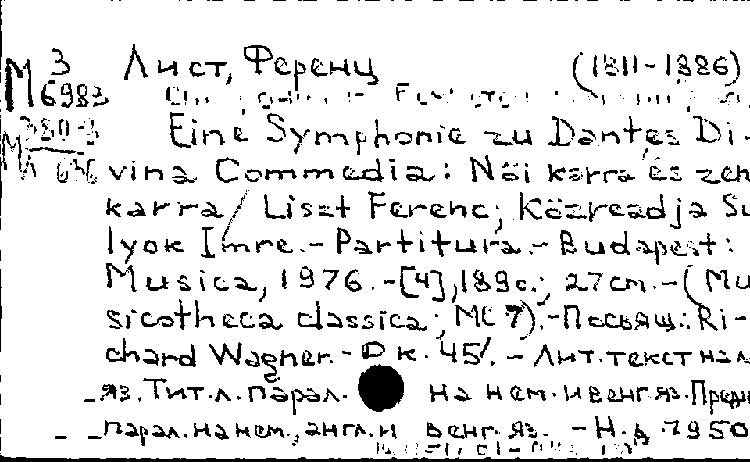 М 3 Лист, Ференц (1811-1886)
6983
380-3 Eine Symphonie zu Dantes Di-
636 vina Commedia: Női karra és zene
karra / Liszt Ferenc; Közreadja Su
lyok Imre.- Partitura.- Budapest:
Musica, 1976. -[4], 189c.; 27cm.-(Mu
sicotheca classica; MC 7).-Посвящ.: Ri-
chard Wagner. - 45/. - Лит. текст на л
яз. Тит.л. парал. на нем. и венг. яз.
парал. на нем., англ. и венг. яз. - Н.д. 7950